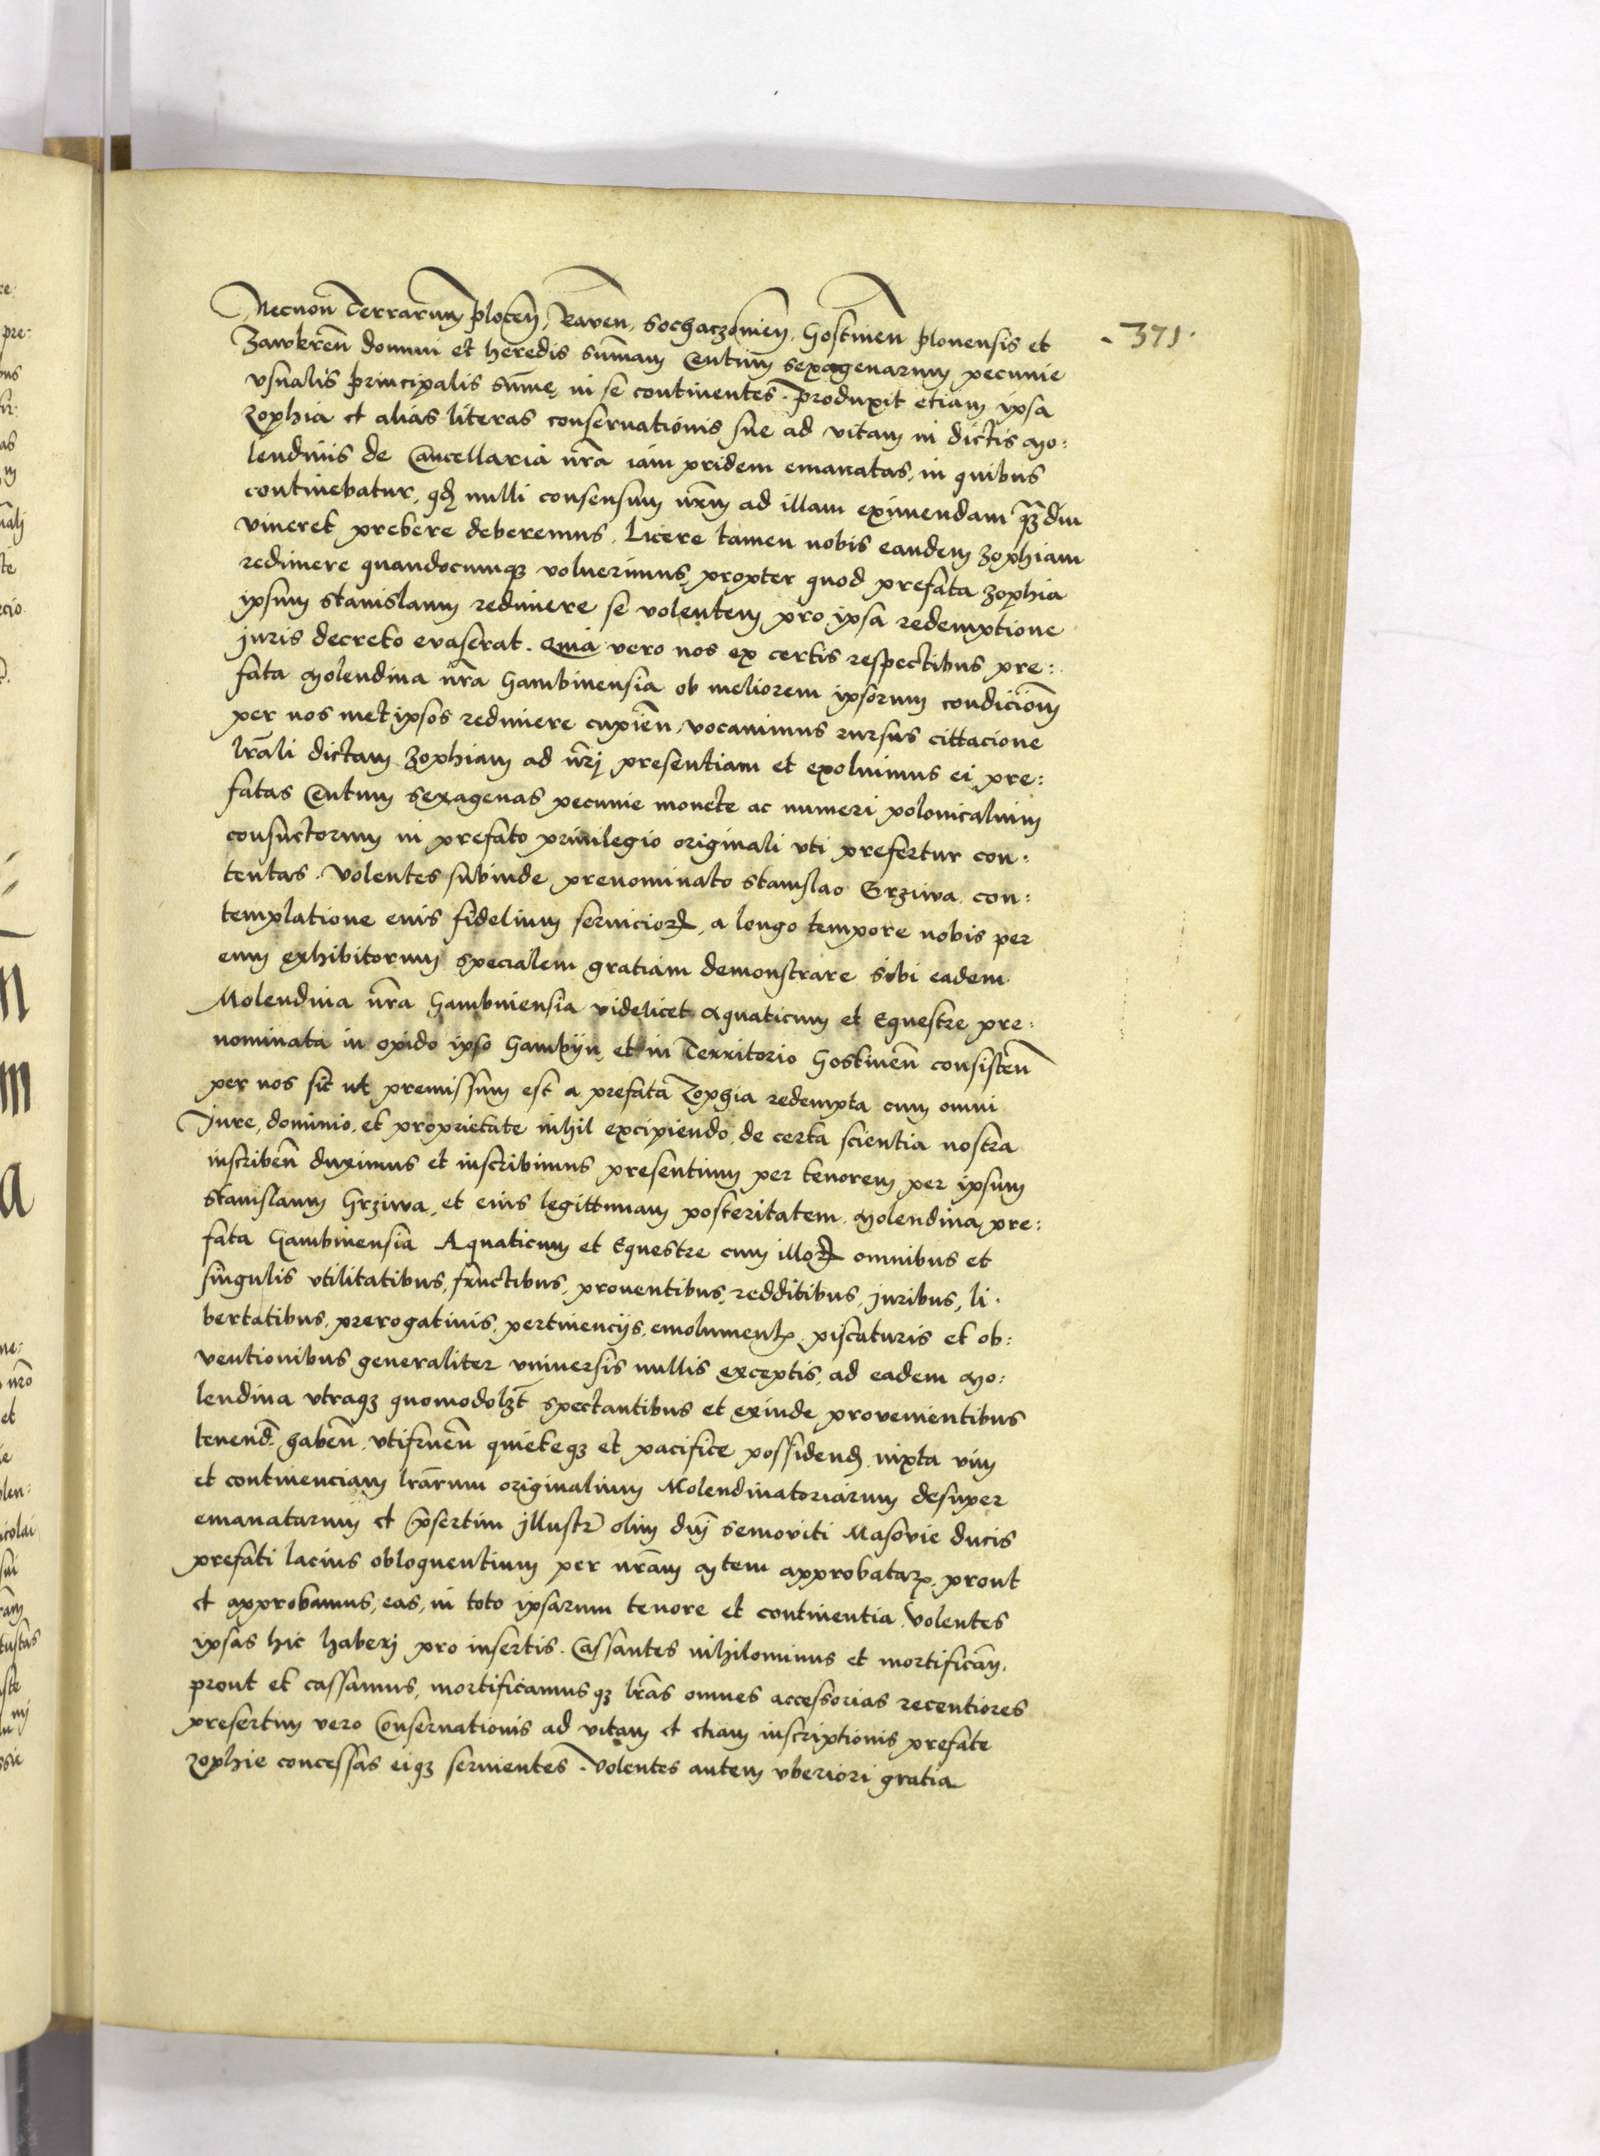 Necnon Terrarum plocen̄, Raven̄, Sochaczovien̄, Gostinen̄ plonensis et
· 371 ·
Zawkren̄ domini et heredis sum̄am Centum sexagenarum pecunie
vsualis principalis sum̄e, in se continentes. Produxit etiam ipsa
Zophia et alias literas conservationis sue ad vitam in dictis mo:
lendinis de Cancellaria nr̄a iam pridem emanatas, in quibus
continebatur, qd̄ nulli consensum nrm̄ ad illam eximendam qȝ̄diu
viueret prebere deberemus. Licere tamen nobis eandem Zophiam
redimere quandocumqȝ voluerimus, propter quod prefata Zophia
ipsum Stanislaum redimere se volentem pro ipsa redemptione
juris decreto evaserat. Quia vero nos ex certis respectibus pre:
fata Molendina nr̄a Gambinensia ob meliorem ipsorum condicioēm
per nos met ipsos redimere cupien̄, vocauimus rursus cittacione
lrāli dictam Zophiam ad nrī presentiam et exoluimus ei pre:
fatas Centum sexagenas pecunie monete ac numeri polonicalium
consuetorum in prefato priuilegio originali vti prefertur con:
tentas. Volentes subinde prenominato Stanislao Grziwa con:
templatione eius fidelium seruicioꝝ, a longo tempore nobis per
eum exhibitorum specialem gratiam demonstrare sibi eadem
Molendina nr̄a Gambinensia videlicet Aquaticum et Equestre pre:
nominata in opido ipso Gambijn et in Territorio Gostinen̄ consisten̄
per nos sic ut premissum est a prefata Zophia redempta cum omni
Jure, dominio, et proprietate nihil excipiendo, de certa scientia nostra
inscriben̄ duximus et inscribimus presentium per tenorem per ipsum
Stanislaum Grziwa, et eius legittimam posteritatem Molendina pre:
fata Gambinensia Aquaticum et Equestre cum illoꝝ omnibus et
singulis vtilitatibus, fructibus, prouentibus, redditibus, juribus, li:
bertatibus, prerogatiuis, pertinencijs, emolumentꝭ, piscaturis et ob:
ventionibus generaliter vniuersis nullis exceptis, ad eadem Mo:
lendina vtraqȝ quomodolȝt spectantibus et exinde provenientibus
tenend̄, haben̄, vtifruen̄ quieteqȝ et pacifice possidend̄ iuxta vim
et continenciam lrārum originalium Molendinatoriarum desuper
emanatarum et p̄sertim jllustr̄ olim dn̄j Semoviti Masovie ducis
prefati lacius obloquentium per nrām Mtem approbataꝝ, prout
et approbamus, eas, in toto ipsarum tenore et continentia, volentes
ipsas hic haberj pro insertis. Cassantes nihilominus et mortifican̄,
prout et cassamus, mortificamusqȝ lrās omnes accessorias recentiores
presertim vero Conseruationis ad vitam et etiam inscriptionis prefate
Zophie concessas eiqȝ seruientes. Volentes autem vberiori gratia